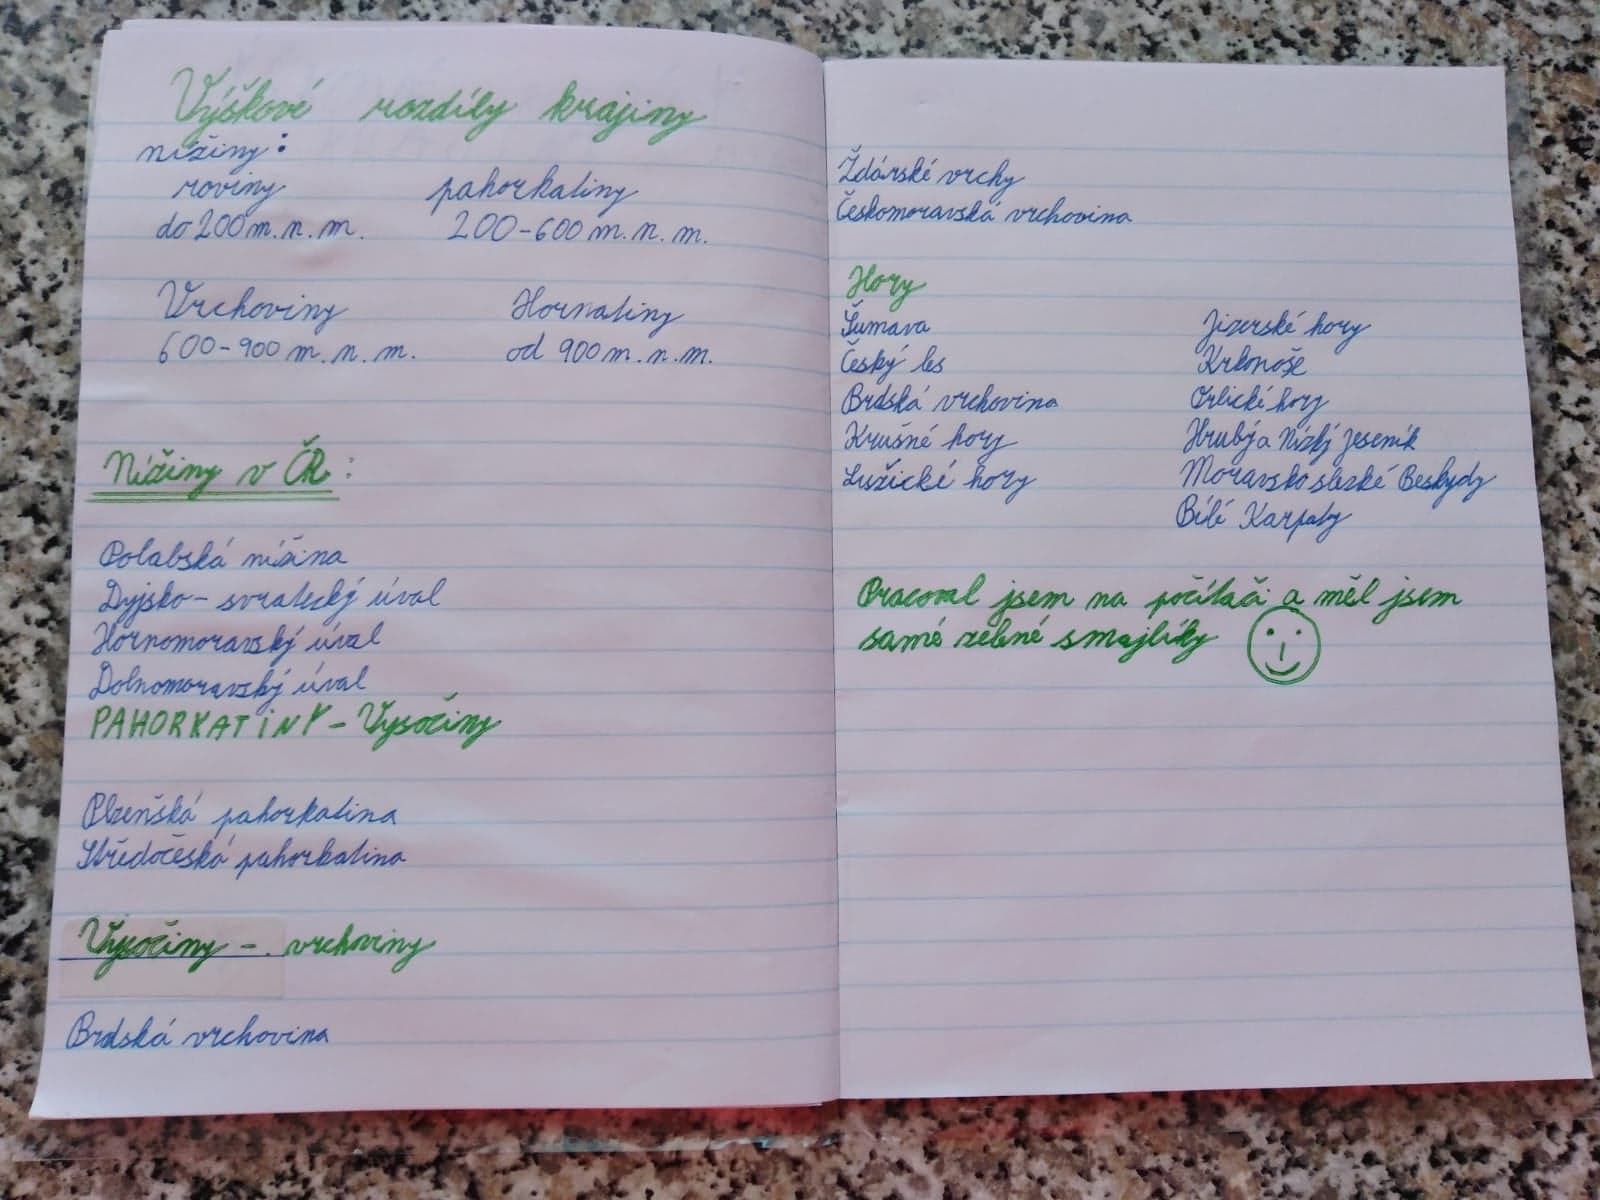 Výškové rozdíly krajiny
nížiny:
roviny pahorkatiny
do 200 m.n.m. 200-600 m.n.m.
Vrchoviny Hornatiny
600-900 m.n.m. od 900 m.n.m.
Nížiny v ČR:
Polabská nížina
Dyjsko-svratecký úval
Hornomoravský úval
Dolnomoravský úval
PAHORKATINY - Vysočiny
Plzeňská pahorkatina
Středočeská pahorkatina
Vysočiny - vrchoviny
Brdská vrchovina
Žďárské vrchy
Českomoravská vrchovina
Hory
Šumava Jizerské hory
Český les Krkonoše
Brdská vrchovina Orlické hory
Krušné hory Hrubý a Nízký Jeseník
Lužické hory Moravskoslezské Beskydy
Bílé Karpaty
Pracoval jsem na počítači a měl jsem
samé zelené smajlíky